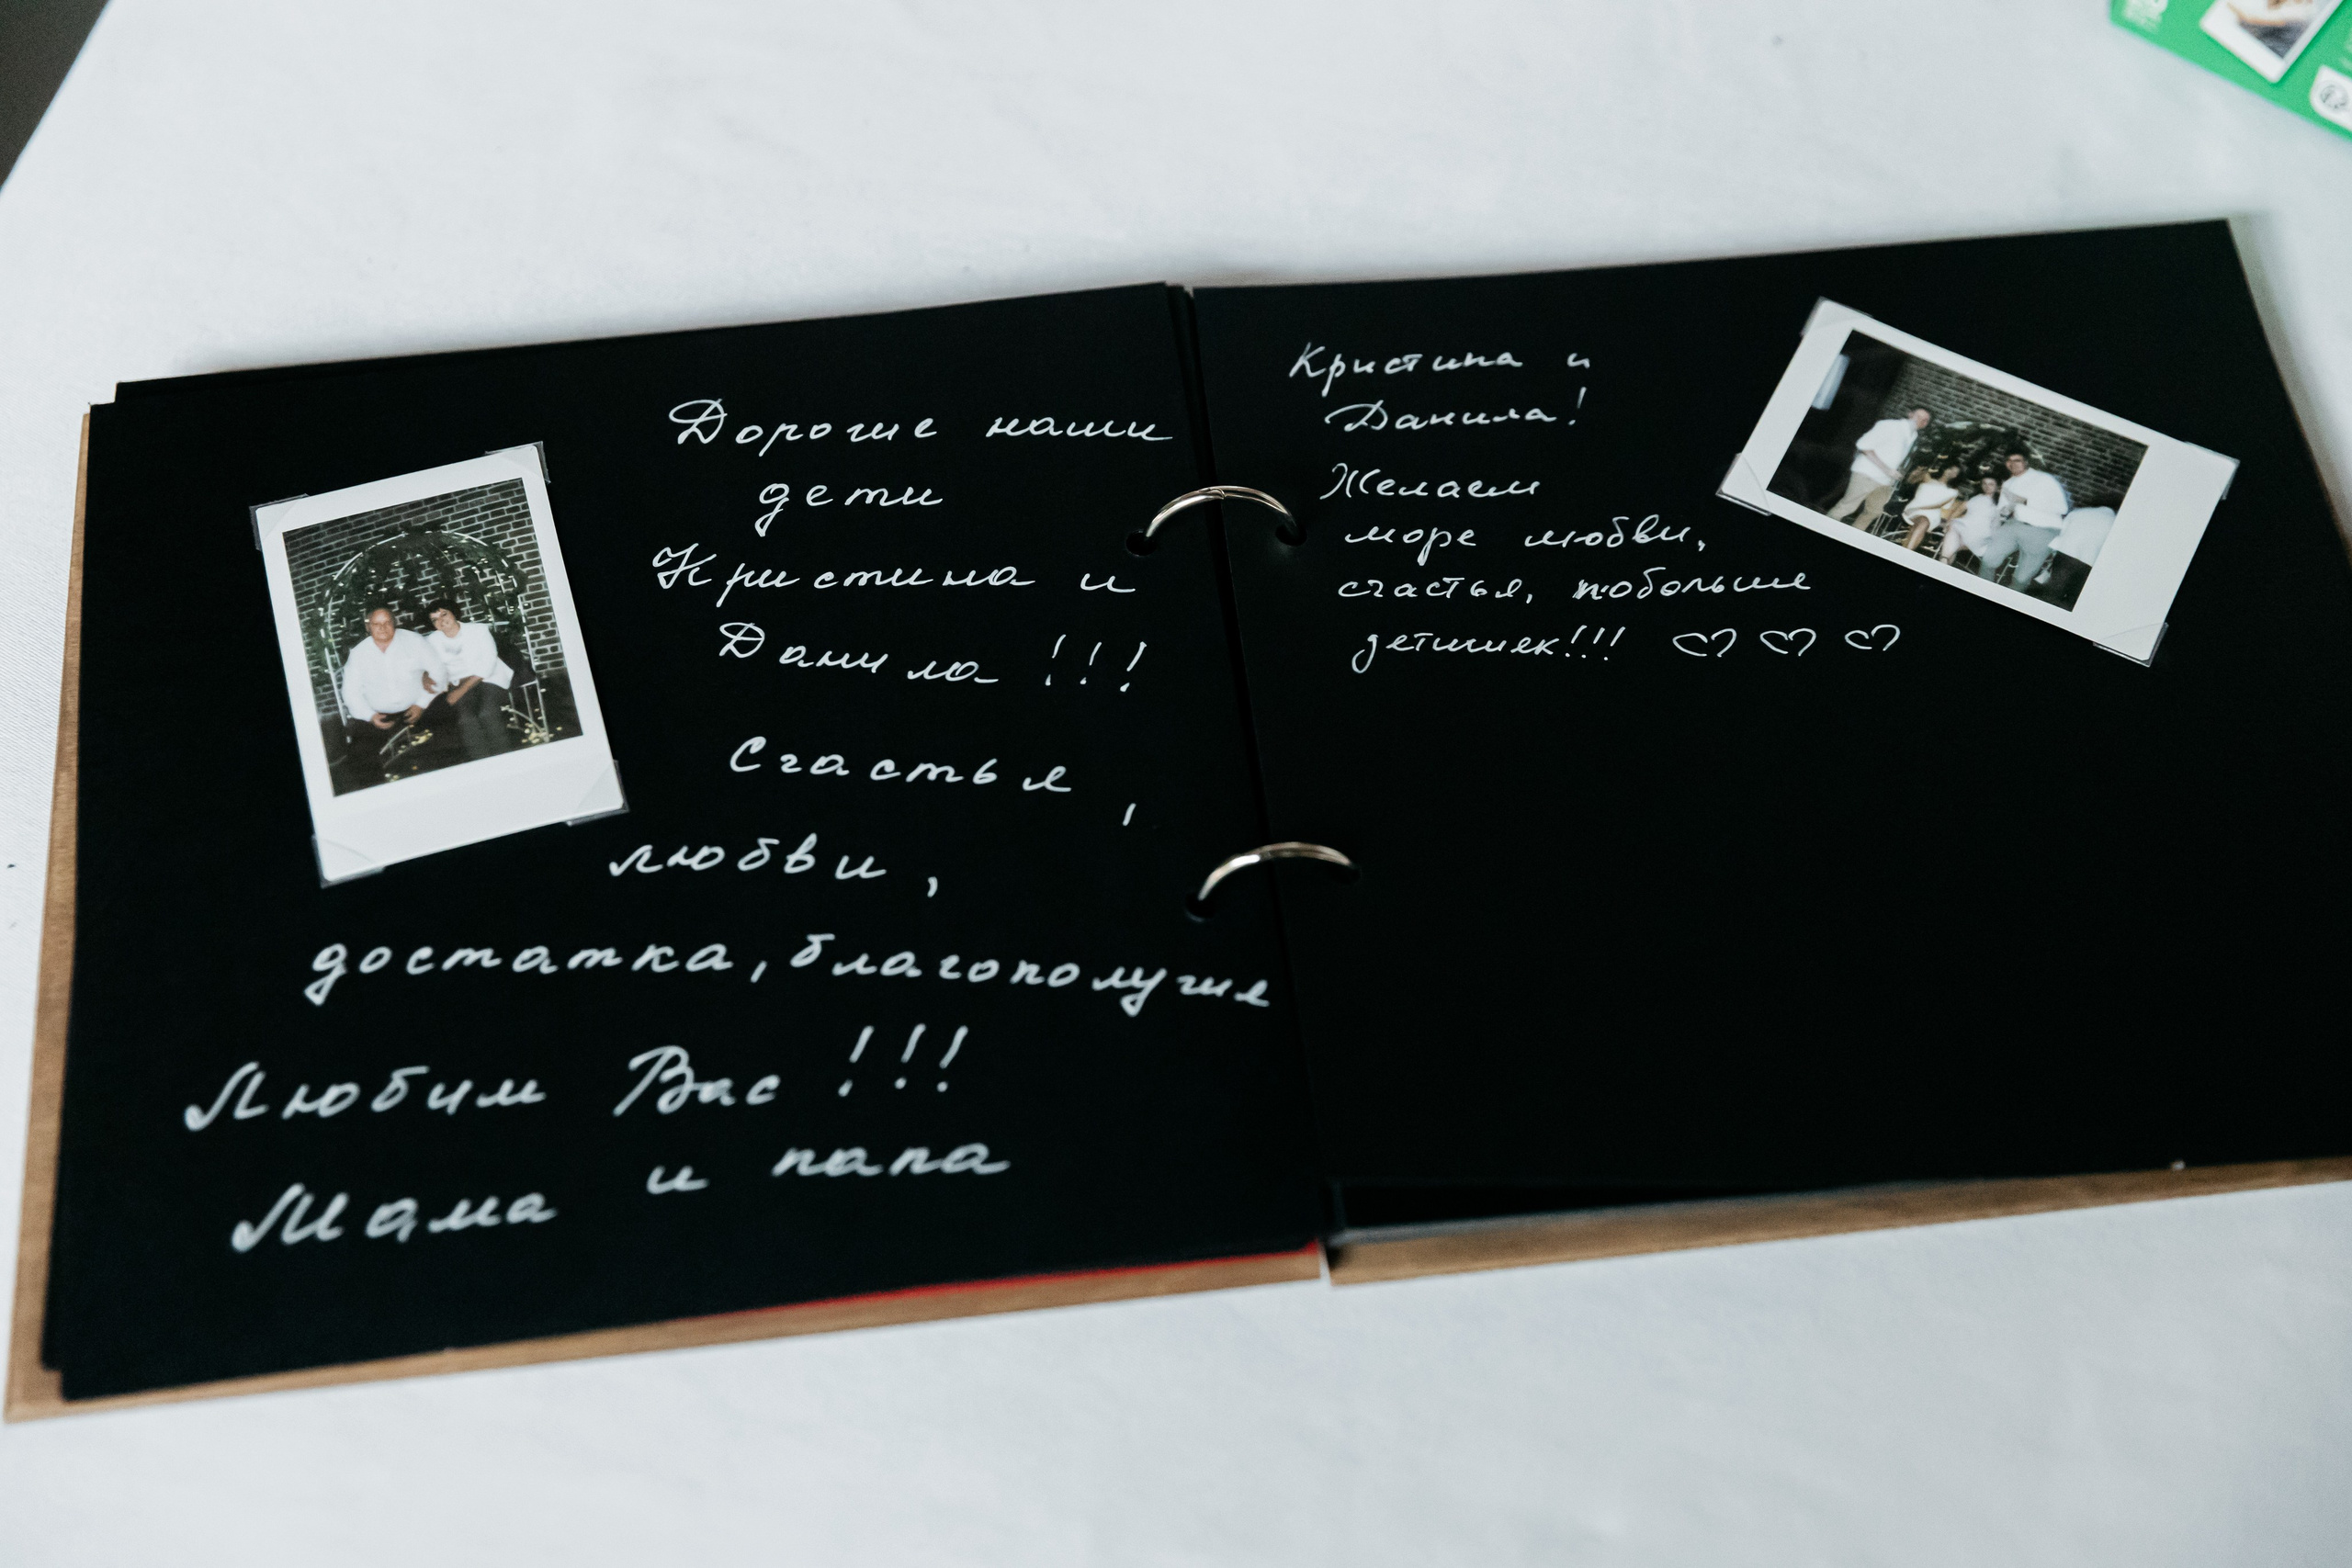 Дорогие наши
дети
Кристина и
Данила!!!
Счастья,
любви,
достатка, благополучие
Любим Вас!!!
Мама и папа
Кристина и
Данила!
Желаем
море любви,
счастья, побольше
детишек!!! ♡ ♡ ♡